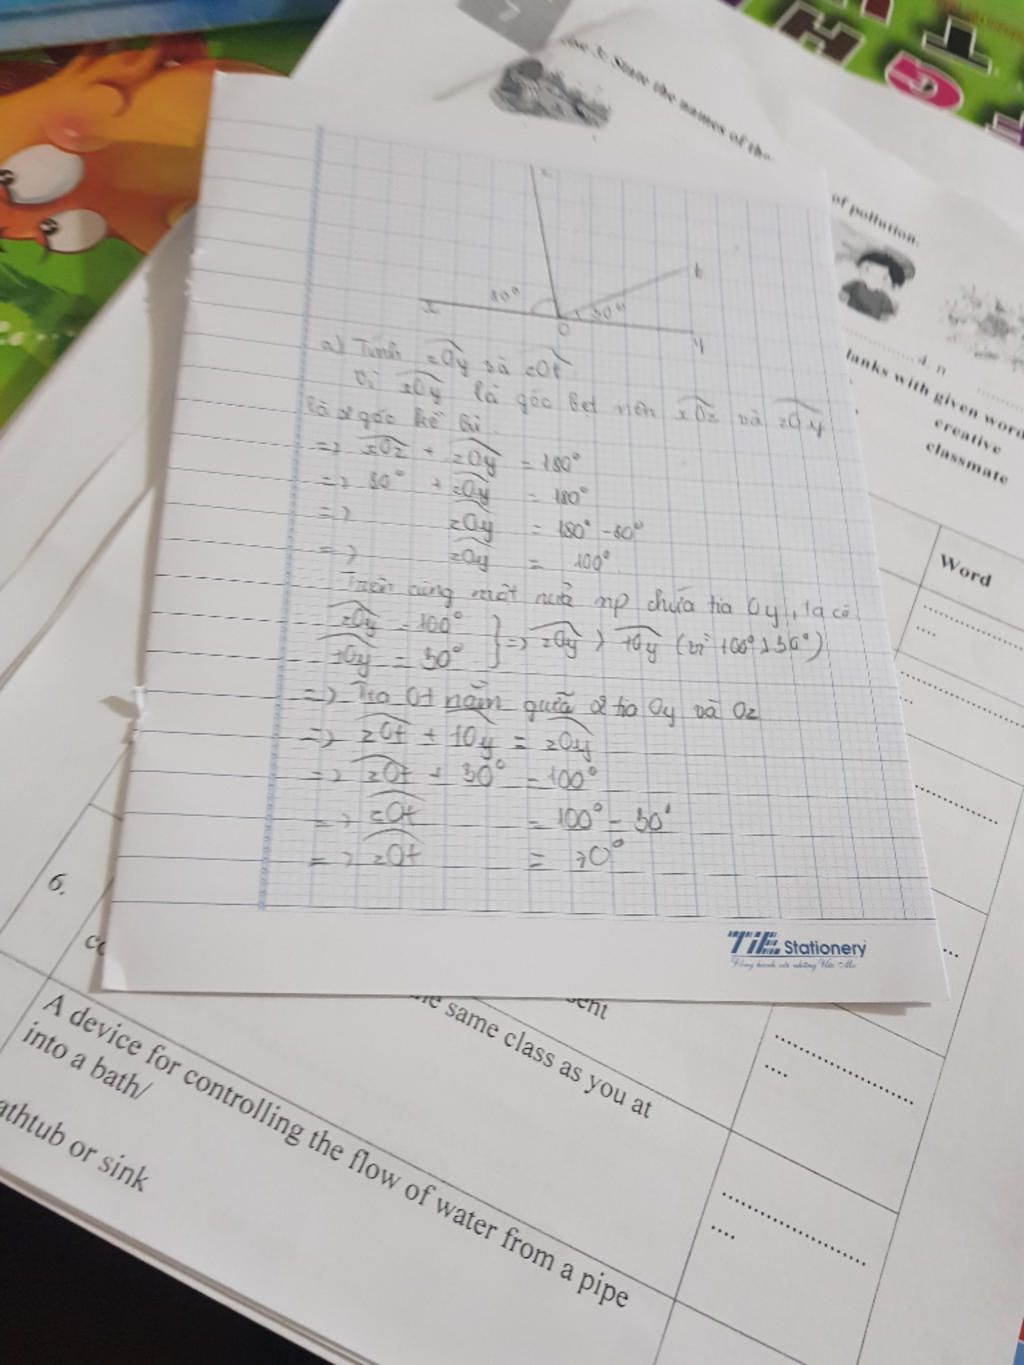 7
ise 3: State the names of the
of pollution.
4. n
lanks with given word
creative
classmate
Word
z
t
x
80°
30°
O
y
a) Tính zOy và zOt
Vì xOy là góc bẹt nên xOz và zOy
là 2 góc kề bù.
=> xOz + zOy = 180°
=> 80° + zOy = 180°
=> zOy = 180° - 80°
=> zOy = 100°.
Trên cùng một nửa mp chứa tia Oy, ta có
zOy = 100°
tOy = 30° } => zOy > tOy (vì 100° > 30°)
=> Tia Ot nằm giữa 2 tia Oy và Oz
=> zOt + tOy = zOy
=> zOt + 30° = 100°
=> zOt = 100° - 30°
=> zOt = 70°
TiE Stationery
6.
co
sent
he same class as you at
A device for controlling the flow of water from a pipe
into a bath/
athtub or sink